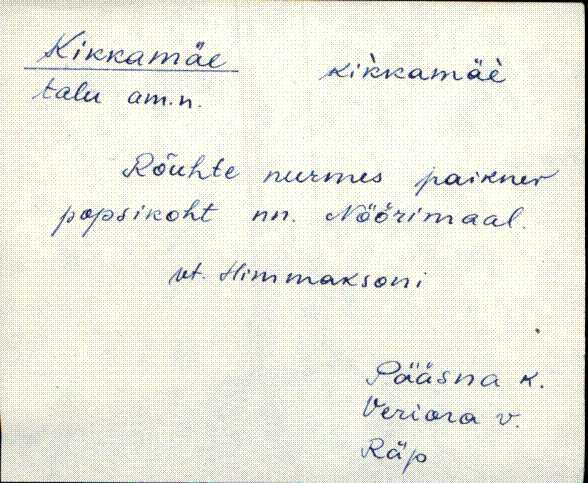 Kikkamäe kìkkamäè
talu am.n.
Rõuhte nurmes paiknev
popsikoht nn. Nöörimaal.
vt. Himmaksoni
Pääsna k.
Veriora v.
Räp